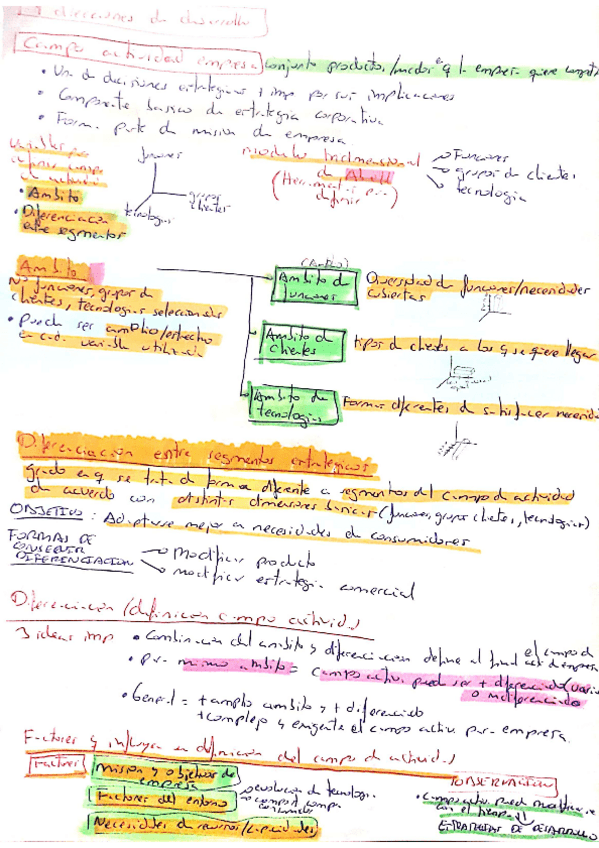 direcciones de desarrollo
Campo actividad empresa conjunto productos/mdos q l empresa quiere
• Una de decisiones estratégicas + imp por sus implicaciones
• Componente basico de estrategia corporativa
• Forma parte de mision de empresa
Variables para
definir campo
de actividad
• Ambito
• Diferenciacion
entre segmentos
funciones
grupos
clientes
tecnologias
modelo tridimensional
de Abell
(Herramienta para
definir)
→ Funciones
→ grupos de clientes
→ tecnologia
Ambito
Nº funciones, grupos de
clientes, tecnologias seleccionadas
• puede ser amplio/estrecho
en cada variable utilizada
Ambito de
funciones
Diversidad de funciones/necesidades
cubiertas
Ambito de
clientes
tipos de clientes a los q se quiere llegar
Ambito de
tecnologias
Formas diferentes de satisfacer
Diferenciación entre segmentos estratégicos
grado en q se trata de forma diferente a segmentos del campo de actividad
de acuerdo con distintas dimensiones basicas (funciones, grupos clientes, tecnologias)
OBJETIVO: Adaptarse mejor a necesidades de consumidores
FORMAS DE
CONSEGUIR
DIFERENCIACION
→ Modificar producto
→ modificar estrategia comercial
Diferenciación/definicion campo actividad
3 ideas imp • Combinacion del ambito y diferenciacion define al final el campo de act de empresa
• para mismo ambito = campo activ. puede ser + diferenciado
o indiferenciado
• General = + amplio ambito y + diferenciado
+ complejo y exigente el campo activ para empresa
Factores q influyen en definición del campo de actividad
Factores
Mision y objetivos de
empresa
Factores del entorno
→ evolucion de tecnologia
→ comport
consumidor
Necesidades de recursos/capacidades
OBSERVACION
• Campo activ puede modificarse
con el tiempo
ESTRATEGIAS DE DESARROLLO